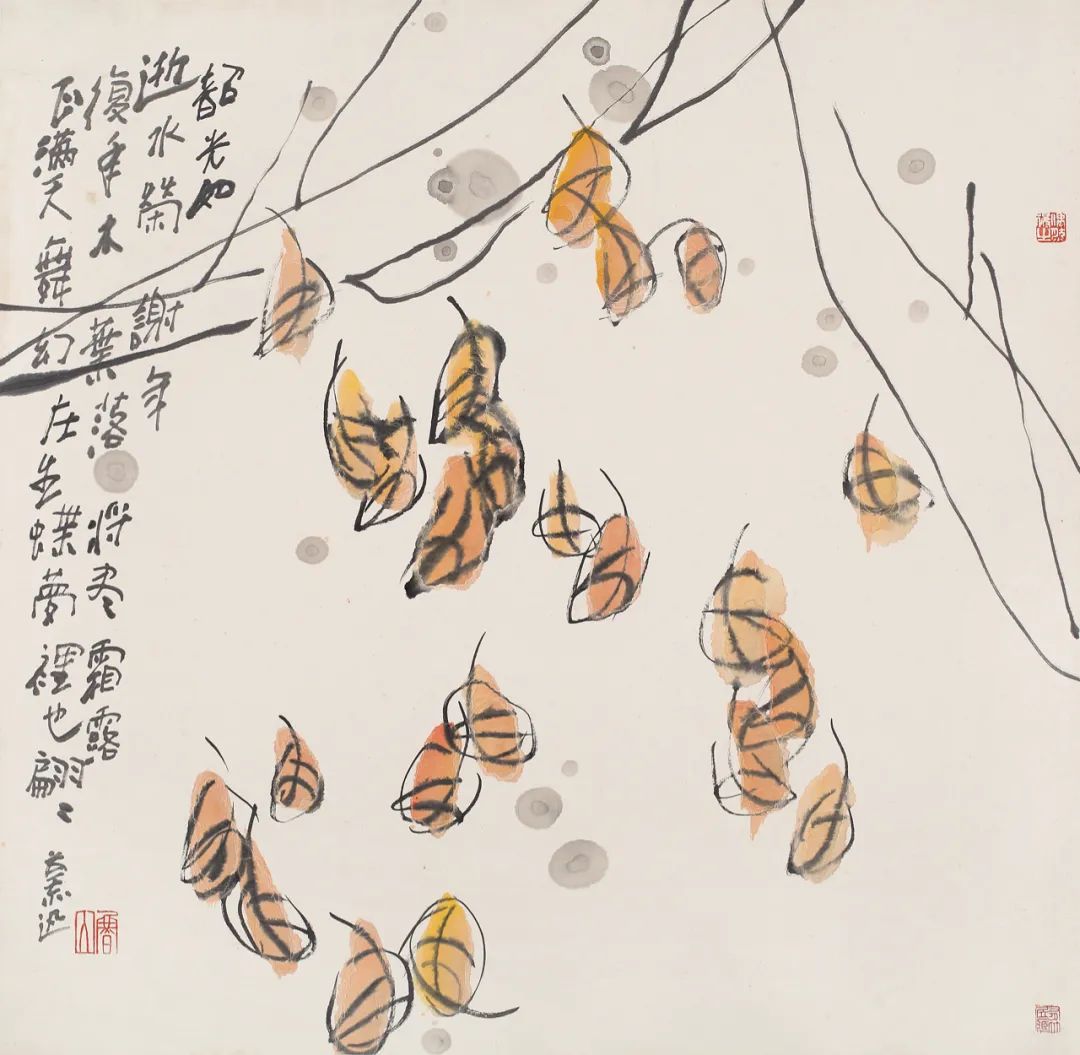 韶光如
逝水榮謝年
復年木葉落將尽霜露
滿天舞幻庄生蝶夢裡也翩〻